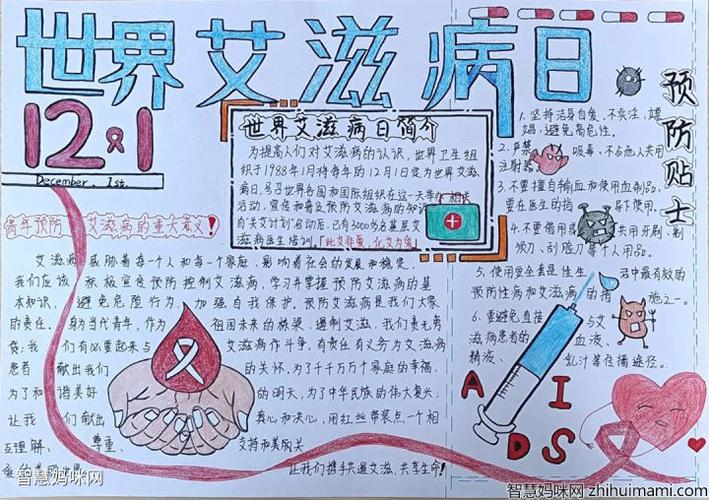 世界艾滋病日
12.1
December. 1st.
世界艾滋病日简介
为提高人们对艾滋病的认识，世界卫生组
织于1988年1月将每年的12月1日定为世界艾滋
病日，号召世界各国和国际组织在这一天举办相关
活动，宣传和普及预防艾滋病的知识
“关艾计划”启动后，已有3000万名基层艾
滋病医生培训。
青年预防艾滋病的重大意义！
艾滋病威胁着每一个人和每一个家庭，影响着社会的发展和稳定，
我们应该积极宣传预防控制艾滋病，学习并掌握预防艾滋病的基
本知识，避免危险行为，加强自我保护，预防艾滋病是我们大家
的责任。身为当代青年，作为祖国未来的栋梁，遏制艾滋，我们责无旁
贷；我们有必要起来与艾滋病作斗争，有责任有义务为艾滋病
患者献出我们的关怀。为了千千万万个家庭的幸福，
为了和谐美好的明天，为了中华民族的伟大复兴；
让我们献出真心和决心，用红丝带装点一个相
互理解、尊重、支持和美
让我们携手共遏艾滋、共享生命！
预防贴士
1. 坚持洁身自爱，不卖淫、嫖
娼，避免高危性。
2. 严禁吸毒，不与他人共用
注射器。
3. 不要擅自输血和使用血制品，
要在医生的指导下使用。
4. 不要借用或共用牙刷、剃
须刀、刮脸刀等个人用品。
5. 使用安全套是性生活中最有效的
预防性病和艾滋病的措施之一。
6. 要避免直接与艾
滋病患者的血液、
精液、乳汁等
途径。
AIDS
智慧妈咪网
智慧妈咪网 zhihuimami.com